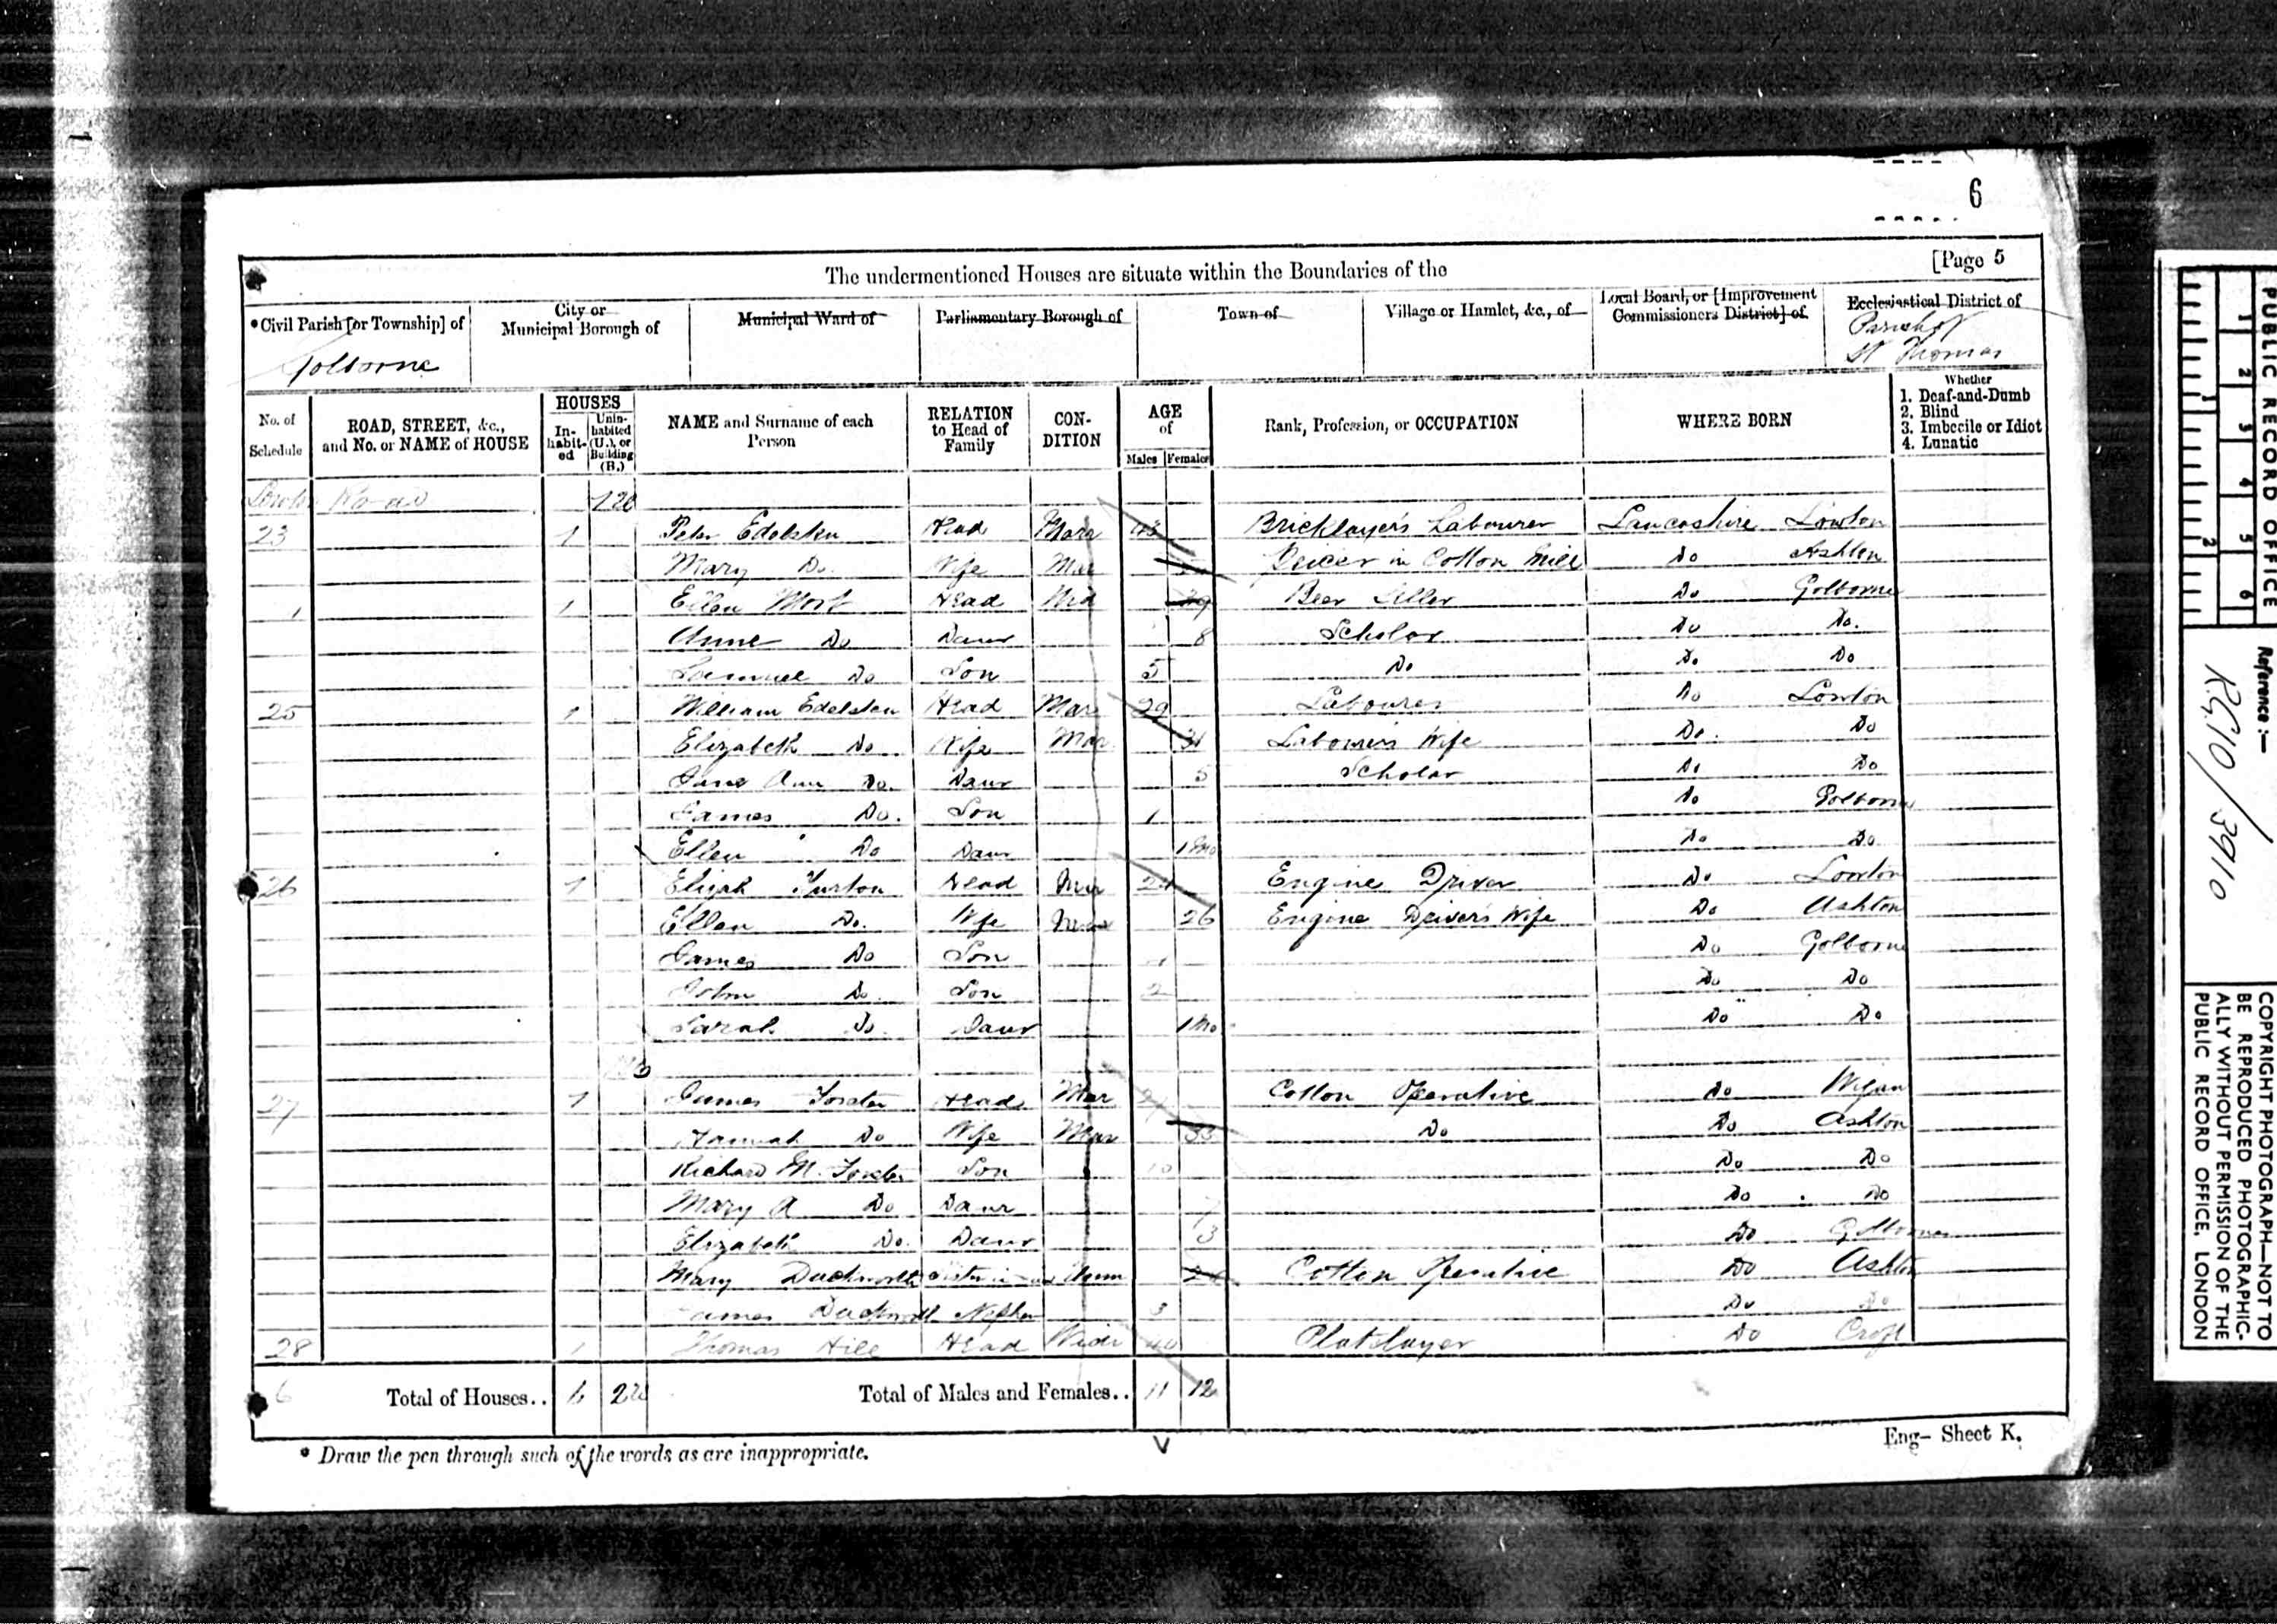 6
[Page 5
The undermentioned Houses are situate within the Boundaries of the
*Civil Parish [or Township] of
City or Municipal Borough of
Municipal Ward of
Parliamentary Borough of
Town of
Village or Hamlet, &c., of
Local Board, or [Improvement Commissioners District] of
Ecclesiastical District of
Golborne
Parish of
St Thomas
No. of Schedule
ROAD, STREET, &c., and No. or NAME of HOUSE
HOUSES
In-habit-ed
Unin-habited (U.), or Building (B.)
NAME and Surname of each Person
RELATION to Head of Family
CON-DITION
AGE of
Males
Females
Rank, Profession, or OCCUPATION
WHERE BORN
Whether
1. Deaf-and-Dumb
2. Blind
3. Imbecile or Idiot
4. Lunatic
23 1 Peter Edelsten Head Mar Bricklayer's Labourer Lancashire Lowton
Mary Do. Wife Mar in Cotton Mill Do Ashton
1 Ellen Head Beer Seller Do Golborne
Anne Do Daur 8 Scholar Do Do.
Samuel Do Son 5 Do Do Do
25 1 William Edelsten Head Mar 29 Labourer Do Lowton
Elizabeth Do Wife Mar 31 Labourers Wife Do. Do
Jane Ann Do. Daur 5 Scholar Do Do
James Do. Son 1 Do Golborne
Ellen Do Daur 1 Mo Do Do
26 1 Elijah Turton Head Mar Engine Driver Do Lowton
Ellen Do. Wife Mar 26 Engine Driver's Wife Do Ashton
James Do Son Do Golborne
John Do. Son 2 Do Do
Sarah Do. Daur 1 Mo Do Do
27 1 James Forster Head Mar Cotton Operative Do Wigan
Hannah Do Wife Mar 33 Do Do Ashton
Richard M. Forster Son 10 Do Do
Mary A Do Daur 7 Do Do
Elizabeth Do. Daur 3 Do Golborne
Mary Duckworth Sister in law Unm Cotton Operative Do Ashton
James Duckworth Nephew 3 Do Do
28 1 Thomas Hill Head Widr 40 Platelayer Do Croft
6 Total of Houses.. 6
Total of Males and Females.. 11 12
* Draw the pen through such of the words as are inappropriate.
Eng- Sheet K.
PUBLIC RECORD OFFICE
1 2 3 4 5 6
1 2
Reference :-
R.G.10/3910
COPYRIGHT PHOTOGRAPH—NOT TO
BE REPRODUCED PHOTOGRAPHIC-
ALLY WITHOUT PERMISSION OF THE
PUBLIC RECORD OFFICE, LONDON